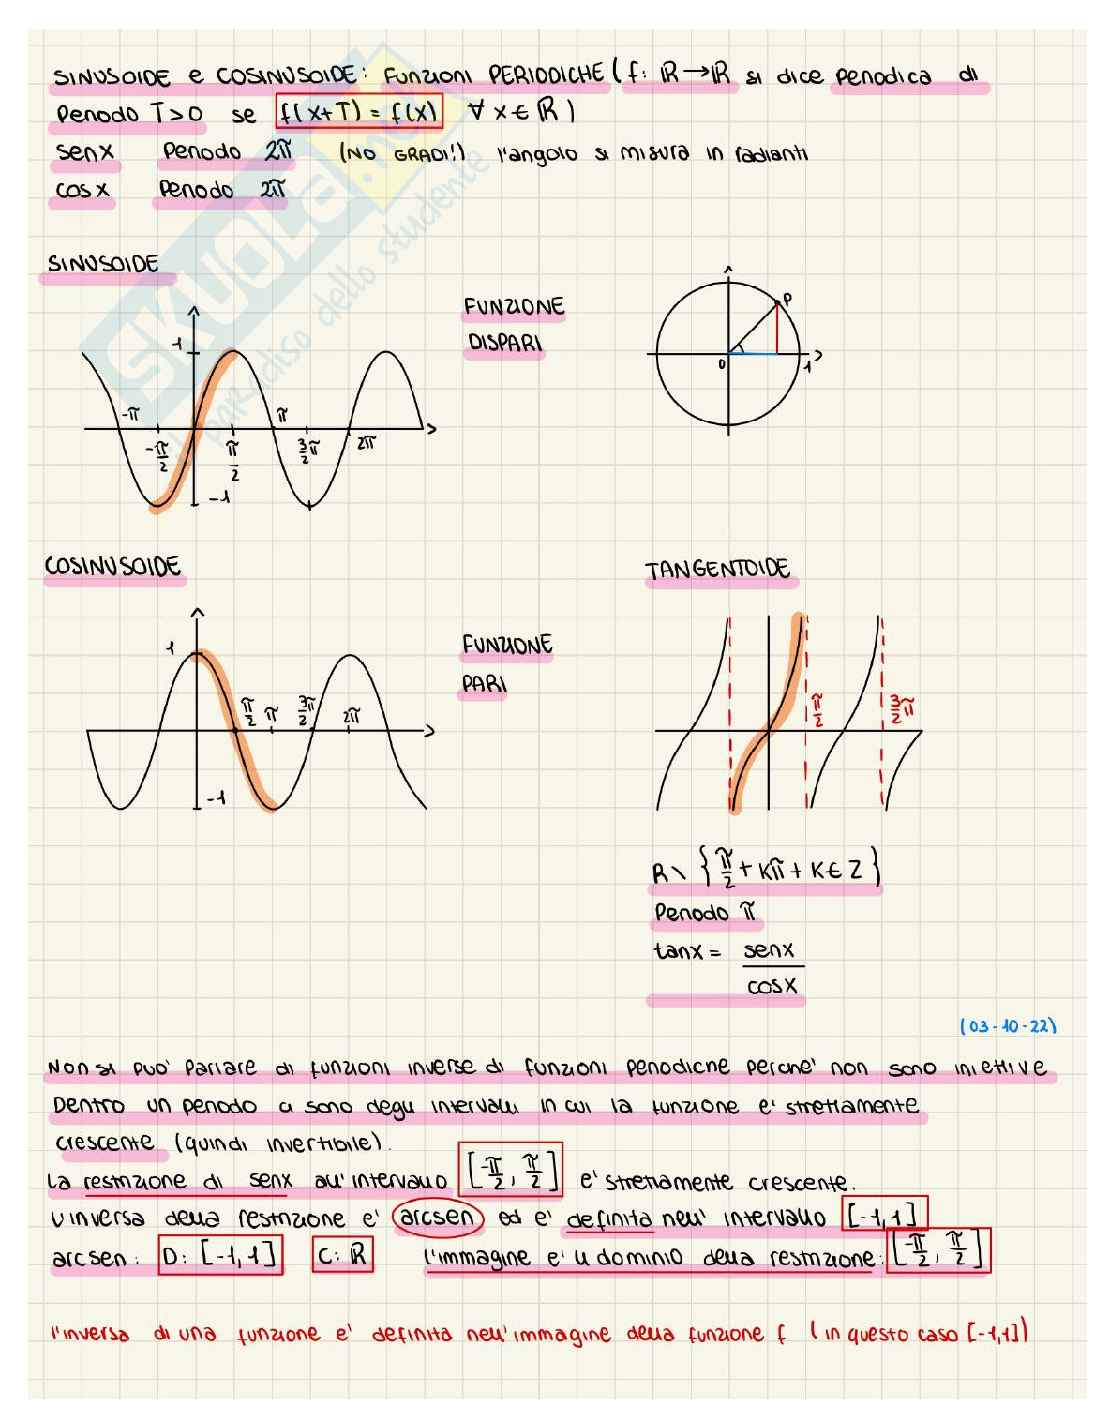 SINUSOIDE e COSINUSOIDE: FUNZIONI PERIODICHE (f: ℝ→ℝ si dice periodica di
periodo T>0 se f(x+T) = f(x) ∀ x ∈ ℝ)
senx periodo 2π (NO GRADI!) l'angolo si misura in radianti
cosx periodo 2π
SKUOLA.net
il paradiso dello studente
SINUSOIDE
FUNZIONE
DISPARI
1
-π
-π/2
π/2
π
3/2 π
2π
-1
P
0
1
COSINUSOIDE
FUNZIONE
PARI
1
π/2
π
3π/2
2π
-1
TANGENTOIDE
π/2
3/2 π
R \ {π/2 + Kπ + K ∈ Z}
Periodo π
tanx = senx/cosx
(03-10-22)
Non si può parlare di funzioni inverse di funzioni periodiche perché non sono iniettive
Dentro un periodo ci sono degli intervalli in cui la funzione è strettamente
crescente (quindi invertibile).
La restrizione di senx all'intervallo [-π/2, π/2] è strettamente crescente.
L'inversa della restrizione è arcsen ed è definita nell'intervallo [-1,1]
arcsen: D: [-1,1] C: ℝ l'immagine è il dominio della restrizione: [-π/2, π/2]
l'inversa di una funzione è definita nell'immagine della funzione f (in questo caso [-1,1])